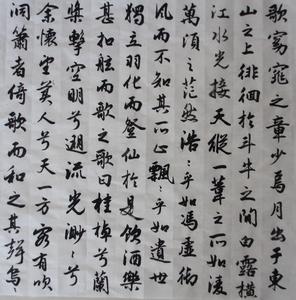 歌窈窕之章少焉月出于東
山之上徘徊於斗牛之間白露橫
江水光接天縱一葦之所如凌
萬頃之茫然浩〻乎如馮虛御
風而不知其所止飄〻乎如遺世
獨立羽化而登仙於是飲酒樂
甚扣舷而歌之歌曰桂棹兮蘭
槳擊空明兮遡流光渺〻兮
余懷望美人兮天一方客有吹
洞簫者倚歌而和之其聲嗚〻